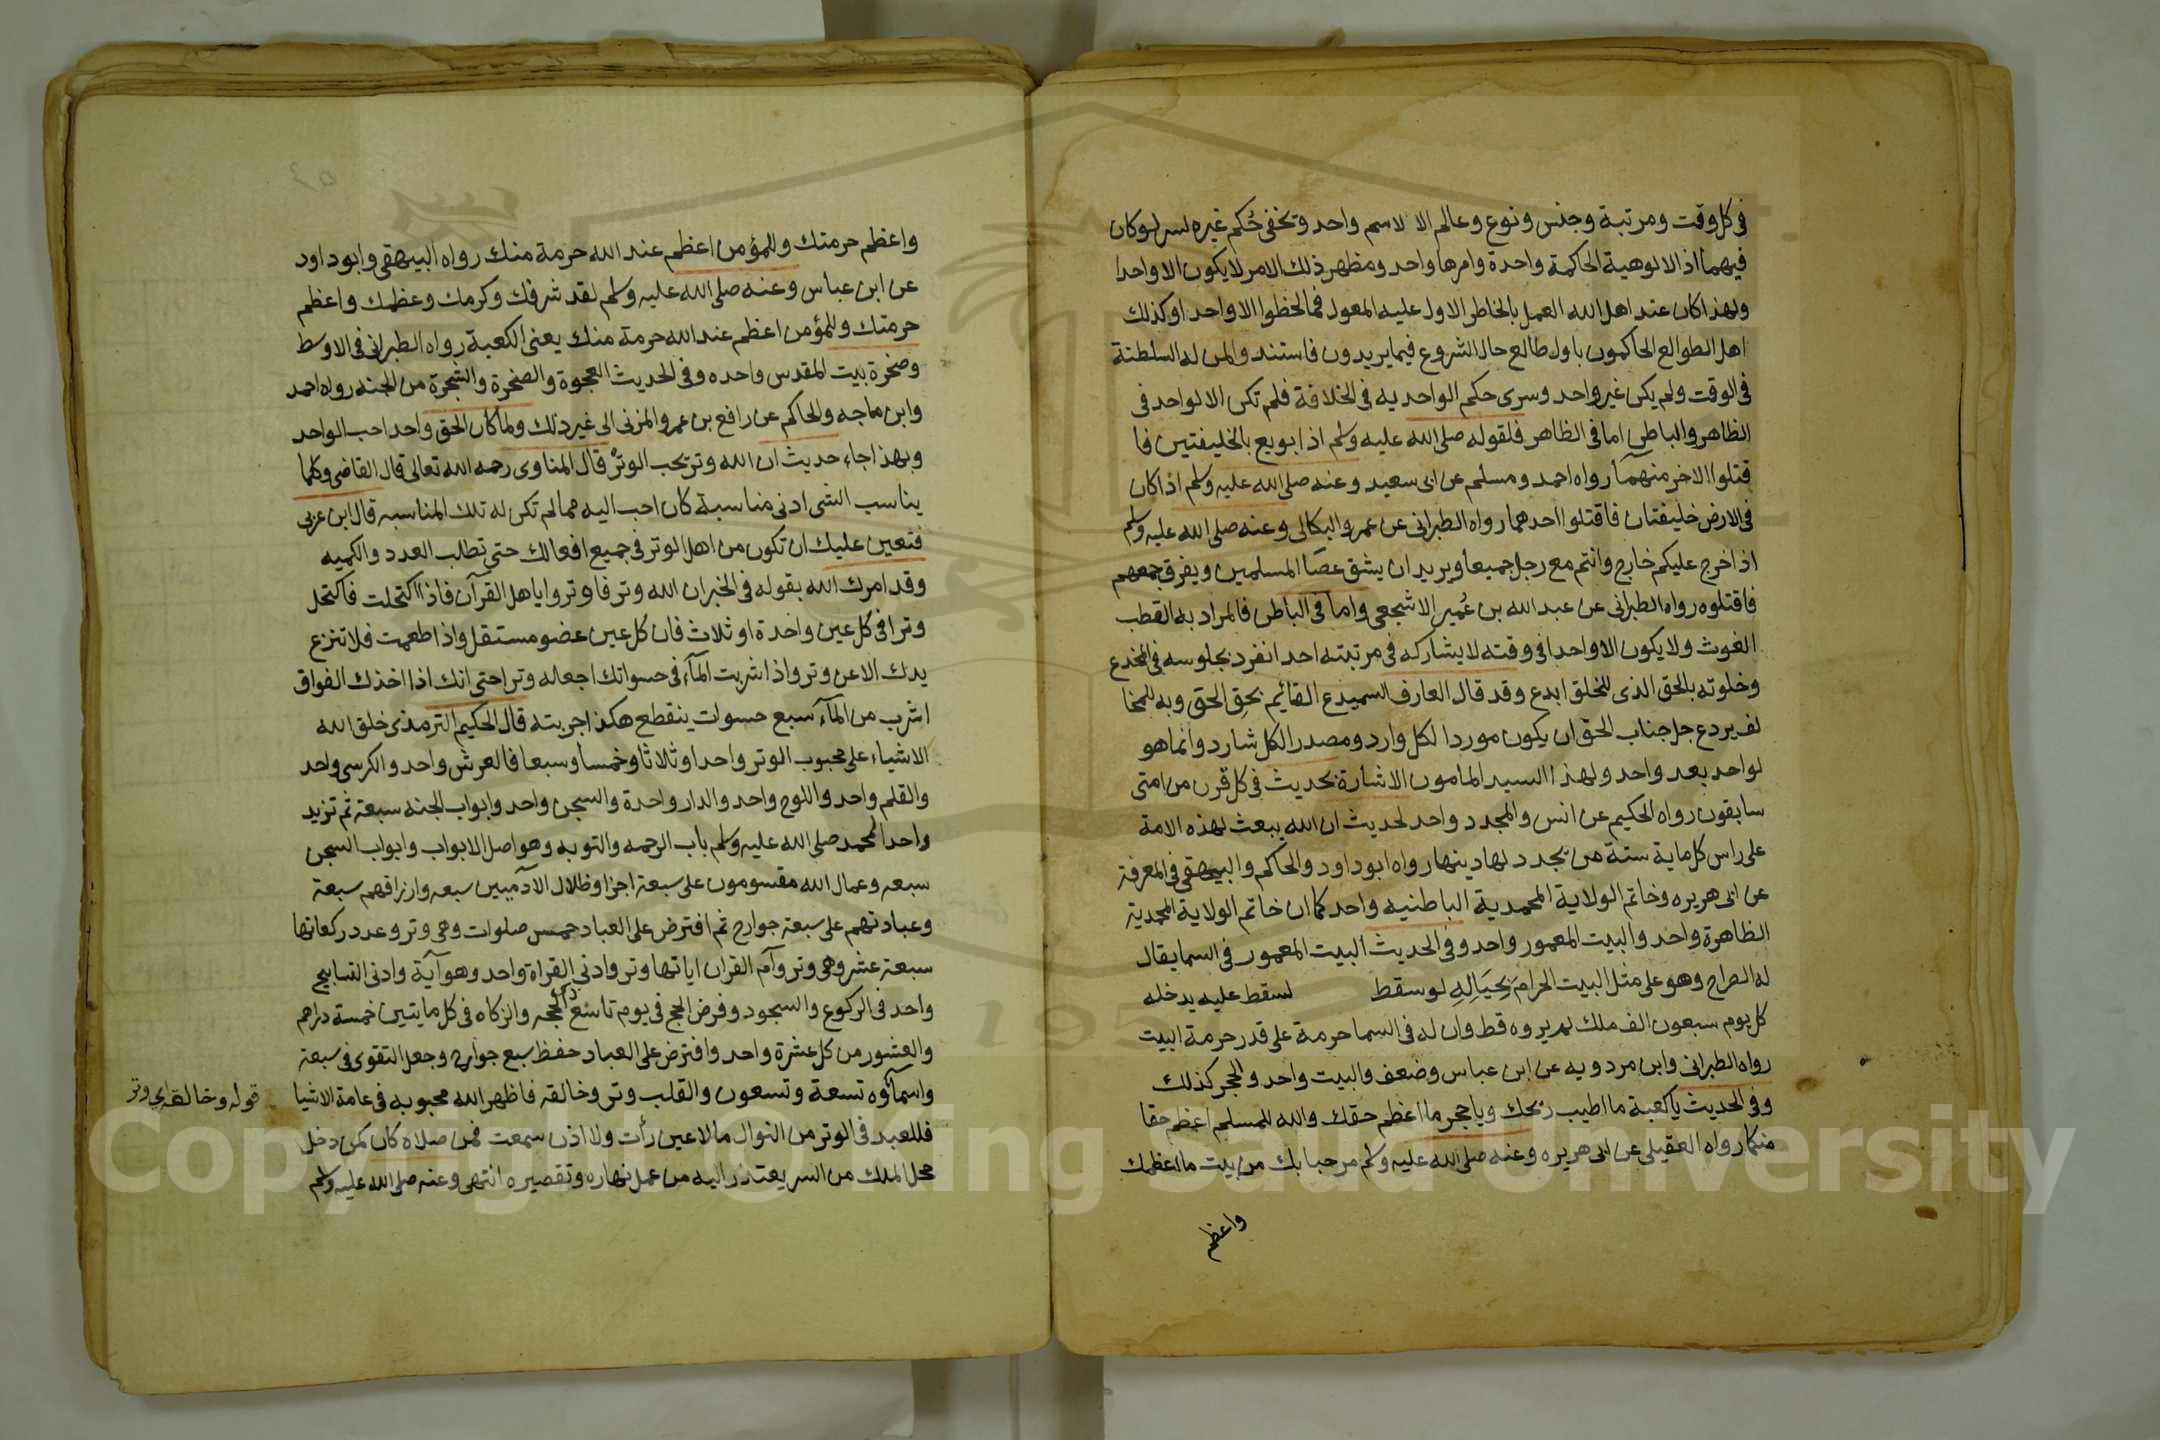 في كل وقت ومرتبة وجنس ونوع وعالم الا لاسم واحد وتخفى حُكم غيره لسر لو كان
فيهما اذ الالوهية الحاكمة واحدة وامرها واحد ومظهر ذلك الامر لا يكون الا واحدا
ولهذا كان عند اهل الله العمل بالخاطر الاول عليه المعول فما لحظوا الا واحد او كذلك
اهل الطوالع الحاكمون باول طالع حال الشروع فيما يريدون فاستند والمن له السلطنة
في الوقت ولم يكن غير واحد وسرى حكم الواحديه في الخلافة فلم تكن الا لواحد في
الظاهر والباطن اما في الظاهر فلقوله صلى الله عليه وسلم اذا بويع بالخليفتين فا
قتلوا الاخر منهما رواه احمد ومسلم عن ابى سعيد وعنه صلى الله عليه وسلم اذا كان
في الارض خليفتان فاقتلوا احدهما رواه الطبرانى عن عمرو البكالى وعنه صلى الله عليه وسلم
اذا خرج عليكم خارج وانتم مع رجل جميعا ويريد ان يشق عصا المسلمين ويفرق جمعهم
فاقتلوه رواه الطبرانى عن عبد الله بن عُمير الاشجعى واما في الباطن فالمراد به القطب
الغوث ولا يكون الا واحدا في وقته لا يشاركه في مرتبته احد انفرد بجلوسه في المخدع
وخلوته بالحق الذى للخلق ابدع وقد قال العارف السميدع القائم بحق الحق وبه للمخا
لف يردع جل جناب الحق ان يكون موردا لكل وارد ومصدر الكل شارد وانما هو
لواحد بعد واحد ولهذا السيد المامون الاشارة بحديث في كل قرن من امتى
سابقون رواه الحكيم عن انس والمجدد واحد لحديث ان الله يبعث لهذه الامة
على راس كل ماية سنة من يجدد لها دينها رواه ابو داود والحاكم والبيهقى في المعرفة
عن ابى هريره وخاتم الولاية المحمدية الباطنيه واحد كما ان خاتم الولاية المحمدية
الظاهرة واحد والبيت المعمور واحد وفي الحديث البيت المعمور في السما يقال
له الصراح وهو على مثل البيت الحرام بِحِيَالِهِ لو سقط لسقط عليه يدخله
كل يوم سبعون الف ملك لم يروه قط وان له في السما حرمة على قدر حرمة البيت
رواه الطبرانى وابن مردويه عن ابن عباس وضعف والبيت واحد والحجر كذلك
وفي الحديث يا كعبة ما اطيب ريحك ويا حجر ما اعظم حقك والله للمسلم اعظم حقا
منكما رواه العقيلى عن ابى هريره وعنه صلى الله عليه وسلم مرحبا بك من بيت ما اعظمك
واعظم
واعظم حرمتك وللمؤمن اعظم عند الله حرمة منك رواه البيهقى وابو داود
عن ابن عباس وعنه صلى الله عليه وسلم لقد شرفك وكرمك وعظمك واعظم
حرمتك وللمؤمن اعظم عند الله حرمة منك يعنى الكعبة رواه الطبرانى في الاوسط
وصخرة بيت المقدس واحده وفي الحديث العجوة والصخرة والشجرة من الجنه رواه احمد
وابن ماجه والحاكم عن رافع بن عمرو المزنى الى غير ذلك ولما كان الحق واحد احب الواحد
وبهذا جاء حديث ان الله وتر يحب الوتر قال المناوى رحمه الله تعالى قال القاضى وكلما
يناسب الشى ادنى مناسبة كان احب اليه مما لم تكن له تلك المناسبه قال ابن عربى
فتعين عليك ان تكون من اهل الوتر في جميع افعالك حتى تطلب العدد والكميه
وقد امرك الله بقوله في الخبر ان الله وتر فاوتروا يا اهل القرآن فاذا اكتحلت فاكتحل
وترا في كل عين واحدة او ثلاث فان كل عين عضو مستقل واذا طعمت فلا تنزع
يدك الا عن وتر واذا شربت المآء في حسواتك اجعله وتر احتى انك اذا اخذك الفواق
اشرب من المآء سبع حسوات ينقطع هكذا جربته قال الحكيم الترمذى خلق الله
الاشياء على محبوب الوتر واحدا وثلاثا وخمسا وسبعا فالعرش واحد والكرسى واحد
والقلم واحد واللوح واحد والدار واحدة والسجن واحد وابواب الجنه سبعة ثم تزيد
واحدا لمحمد صلى الله عليه وسلم باب الرحمه والتوبه وهو اصل الابواب وابواب السجن
سبعه وعمال الله مقسومون على سبعة اجزا وظلال الآدميين سبعه وارزاقهم سبعة
وعبادتهم على سبعة جوارح ثم افترض على العباد خمس صلوات وهى وتر وعدد ركعاتها
سبعة عشر وهى وتر وأم القران اياتها وتر وادنى القراة واحد وهو آية وادنى التسابيح
واحد في الركوع والسجود وفرض الحج في يوم تاسع ذى الحجه والزكاه في كل مايتين خمسة دراهم
والعشور من كل عشرة واحد وافترض على العباد حفظ سبع جوارح وجعل التقوى في سبعة
واسمآؤه تسعة وتسعون والقلب وتر وخالقه فاظهر الله محبوبه في عامة الاشيا
فللعبد في الوتر من النوال ما لا عين رأت ولا اذن سمعت فمن صلاه كان كمن دخل
محل الملك من السر يعتذر اليه من عمل نهاره وتقصيره انتهى وعنه صلى الله عليه وسلم
قوله وخالقه اى وتر
Copyright © King Saud University